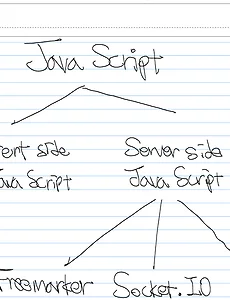 Java Script
ent side
Server side
ava Script
Java Script
Freemarker
Socket.IO